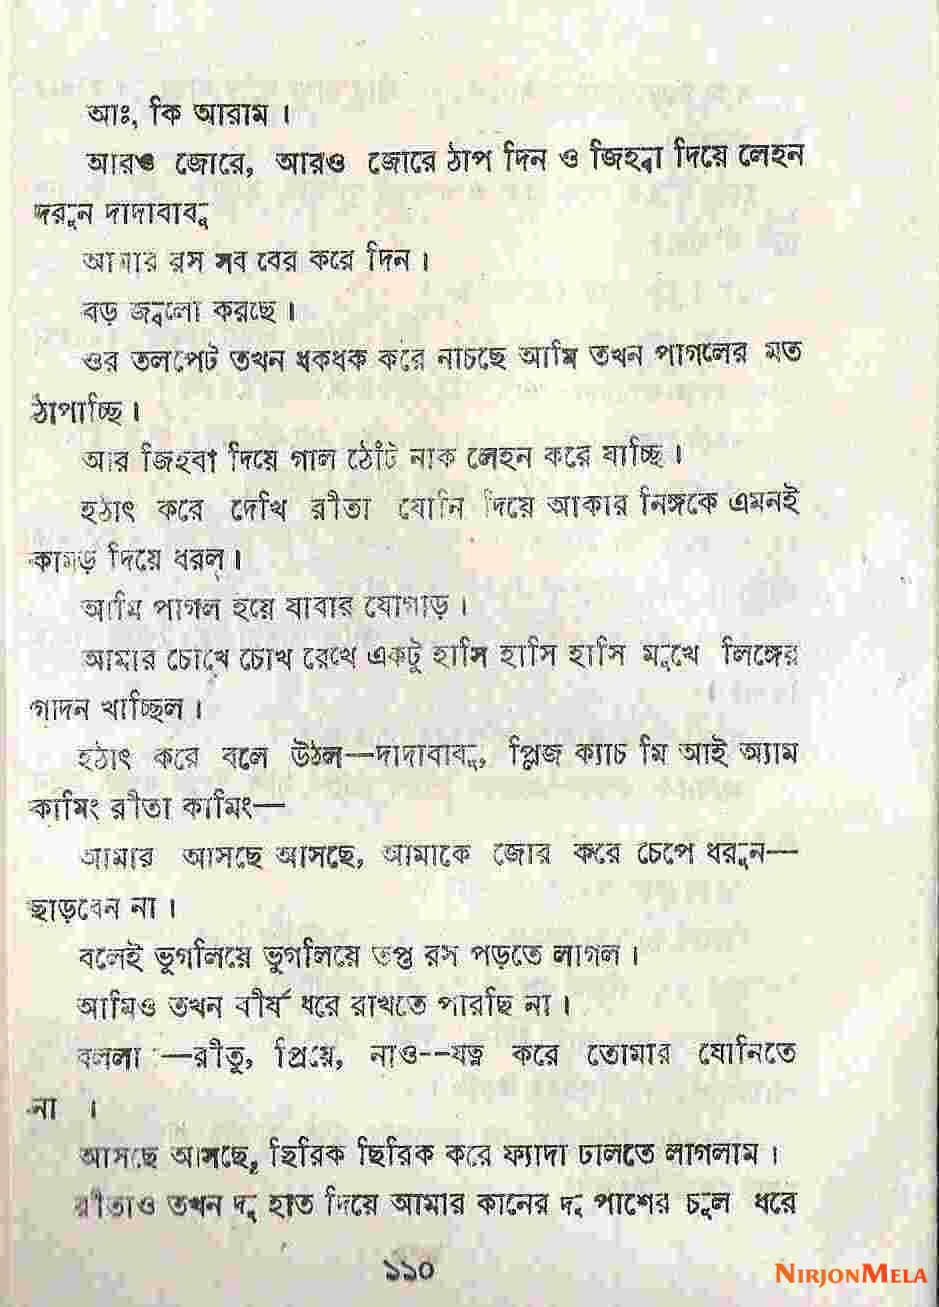 আঃ, কি আরাম।
আরও জোরে, আরও জোরে ঠাপ দিন ও জিহ্বা দিয়ে লেহন
করুন দাদাবাবু
আমার রস সব বের করে দিন।
বড় জ্বলো করছে।
ওর তলপেট তখন ধকধক করে নাচছে আমি তখন পাগলের মত
ঠাপাচ্ছি।
আর জিহবা দিয়ে গাল ঠোঁট নাক লেহন করে যাচ্ছি।
হঠাৎ করে দেখি রীতা যোনি দিয়ে আকার লিঙ্গকে এমনই
কামড় দিয়ে ধরল।
আমি পাগল হয়ে যাবার যোগাড়।
আমার চোখে চোখ রেখে একটু হাসি হাসি হাসি মুখে লিঙ্গের
গাদন খাচ্ছিল।
হঠাৎ করে বলে উঠল—দাদাবাবু, প্লিজ ক্যাচ মি আই অ্যাম
কামিং রীতা কামিং—
আমার আসছে আসছে, আমাকে জোর করে চেপে ধরুন—
ছাড়বেন না।
বলেই ভুগলিয়ে ভুগলিয়ে তপ্ত রস পড়তে লাগল।
আমিও তখন বীর্য ধরে রাখতে পারছি না।
বললা :—রীতু, প্রিয়ে, নাও--যত্ন করে তোমার যোনিতে
না ।
আসছে আসছে, ছিরিক ছিরিক করে ফ্যাদা ঢালতে লাগলাম।
রীতাও তখন দু হাত দিয়ে আমার কানের দু পাশের চুল ধরে
১১০
NIRJONMELA